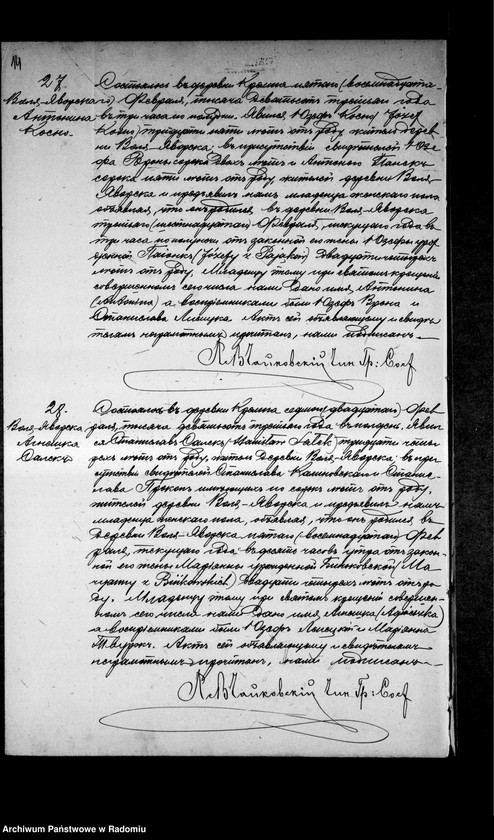 14
27.
Воля-Яворска
Антонина
Косно
Состоялось въ деревни Кромна пятаго (восемнадцата-
го) Февраля, тысяча девятьсотъ третьяго года
въ три часа по полудни. Явился Юзефъ Косно (Józef
тридцати пяти лѣтъ отъ роду, житель дерев-
ни Воля-Яворска, въ присутствіи свидѣтелей Юзе-
фа сорока двухъ лѣтъ и Антонего
сорока пяти лѣтъ отъ роду, жителей деревни Воля-
Яворска и предъявилъ намъ младенца женскаго пола
объявляя, что онъ родился въ деревни Воля-Яворска
третьяго (шестнадцатаго) Февраля, текущаго года въ
три часа по полуночи отъ законной его жены Юзефы урож-
денной (Józefy z Pająków) двадцати четырехъ
лѣтъ отъ роду. Младенцу этому при святомъ крещеніи
совершенномъ сего числа нами дано имя Антонина
(Antonina) а воспріемниками были Юзефъ Врона и
Станислава Актъ сей объявляющему и свидѣ-
телямъ неграмотнымъ прочитанъ, нами подписанъ.-
Чин. Гр: Сост
28.
Воля-Яворска
Агнешка
Салекъ
Состоялось въ деревни Кромна седьмаго (двадцатаго) Фев-
раля, тысяча девятьсотъ третьяго года въ полдень. Явил-
ся Станиславъ Салекъ (Stanisław Salek) тридцати четы-
рехъ лѣтъ отъ роду, житель деревни Воля-Яворска, въ при-
сутствіи свидѣтелей Станислава Калиновскаго и Станис-
лава Прокопъ имѣющихъ по сорока лѣтъ отъ роду,
жителей деревни Воля-Яворска и предъявилъ намъ
младенца женскаго пола, объявляя, что онъ родился въ
деревни Воля-Яворска пятаго (восемнадцатаго) Фев-
раля, текущаго года въ десять часовъ утра отъ закон-
ной его жены Маріанны урожденной (Ma-
ryanny z двадцати четырехъ лѣтъ отъ ро-
ду. Младенцу этому при святомъ крещеніи совершен-
номъ сего числа нами дано имя Агнешка (Agnieszka)
а воспріемниками были Юзефъ и Маріанна
Актъ сей объявляющему и свидѣтелямъ
неграмотнымъ прочитанъ, нами подписанъ.-
Чин. Гр: Сост
Archiwum Państwowe w Radomiu